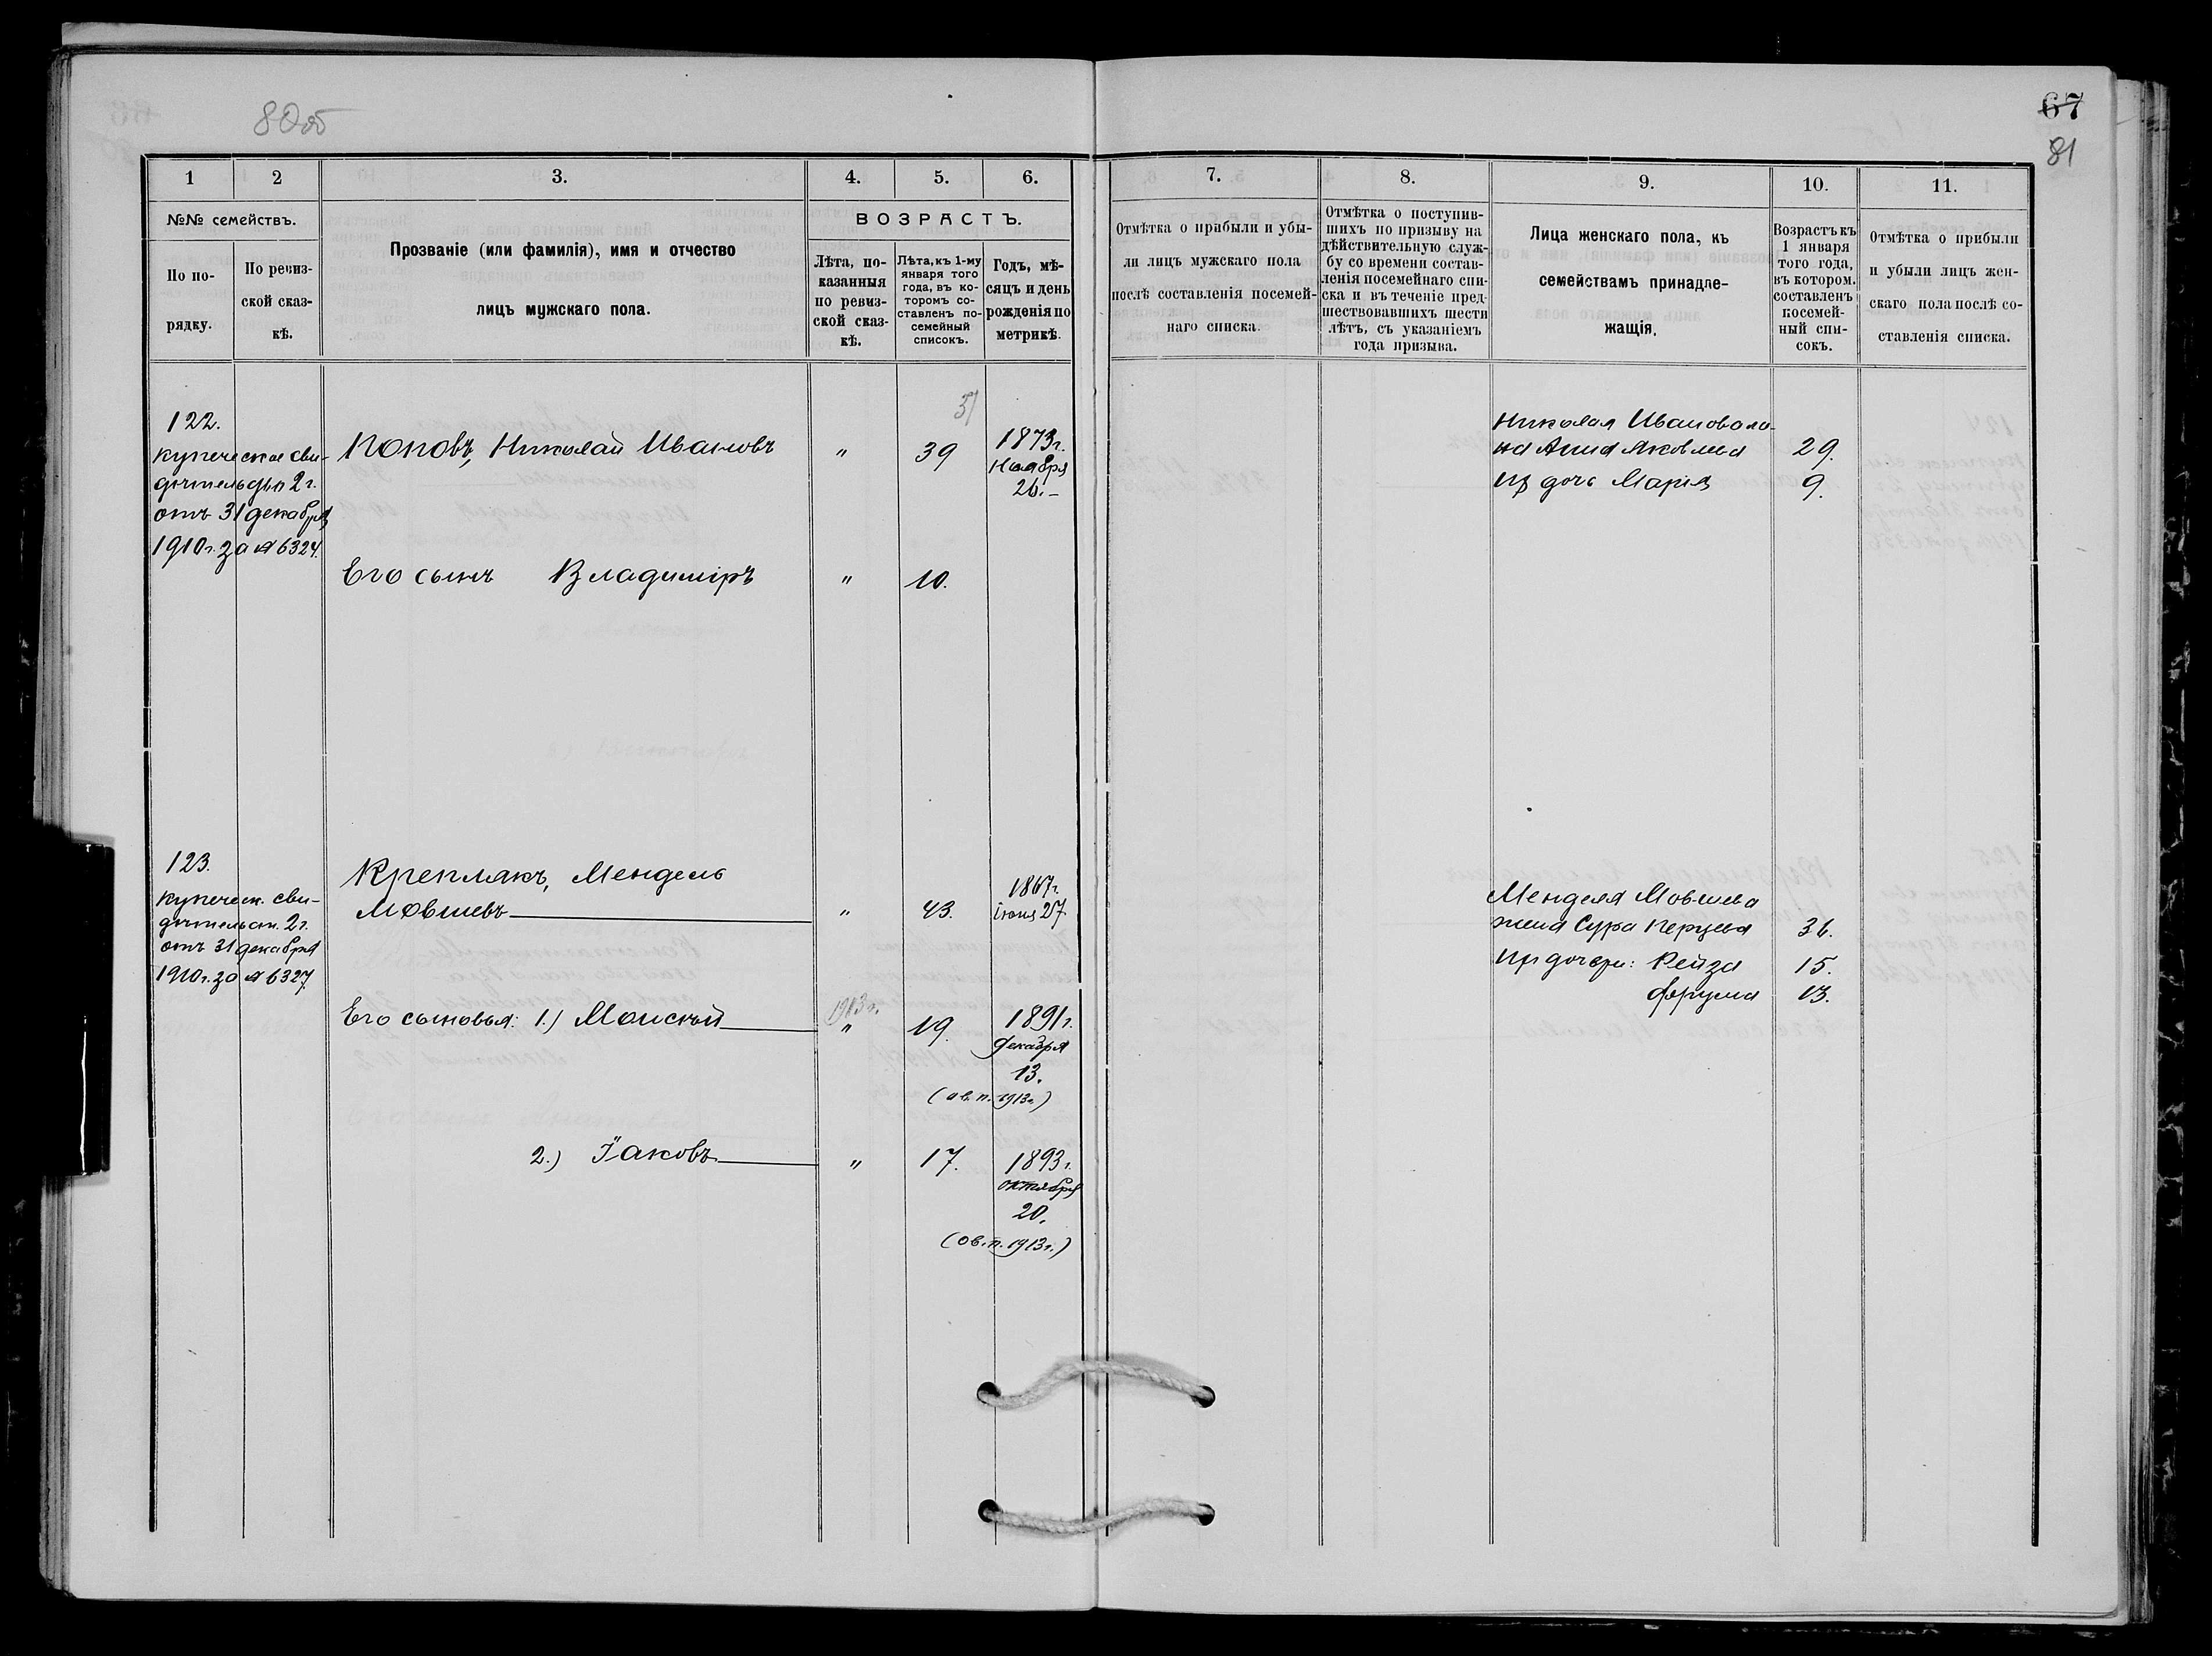 80об
67
81
1
2
3.
4.
5.
6.
№№ семействъ.
По по-
рядку.
По ревиз-
ской сказ-
кѣ.
Прозваніе (или фамилія), имя и отчество
лицъ мужскаго пола.
ВОЗРАСТЪ.
Лѣта, по-
казанныя
по ревиз-
ской сказ-
кѣ.
Лѣта, къ 1-му
января того
года, въ ко-
торомъ со-
ставленъ по-
семейный
списокъ.
Годъ, мѣ-
сяцъ и день
рожденія по
метрикѣ.
7.
8.
9.
10.
11.
Отмѣтка о прибыли и убы-
ли лицъ мужскаго пола
послѣ составленія посемей-
наго списка.
Отмѣтка о поступив-
шихъ по призыву на
дѣйствительную служ-
бу со времени состав-
ленія посемейнаго спи-
ска и въ теченіе пред-
шествовавшихъ шести
лѣтъ, съ указаніемъ
года призыва.
Лица женскаго пола, къ
семействамъ принадле-
жащія.
Возрастъ къ
1 января
того года,
въ котором.
составленъ
посемей-
ный спи-
сокъ.
Отмѣтка о прибыли
и убыли лицъ жен-
скаго пола послѣ со-
ставленія списка.
122.
купеческое сви-
дѣтельство 2 г.
отъ 31 декабря
1910 г. за № 6324.
Поповъ, Николай Ивановъ
"
51
39
1873 г.
Ноября
26.
Его сынъ Владиміръ
"
10.
Николая Иванова же-
на Анна Яковлева 29.
Их дочь Марія 9.
123.
купеческ. сви-
дѣтельст. 2 г.
отъ 31 декабря
1910 г. за № 6327.
Креплакъ, Мендель
Мовшевъ
"
43.
1867 г.
іюня 27
Его сыновья: 1.) Моисей
1913 г.
"
19.
1891 г.
декабря
13.
(ов. п. 1913 г.)
2.) Іаковъ
"
17.
1893 г.
октября
20.
(ов. п. 1913 г.)
Менделя Мовшева
жена Сура Герцева 36.
Их дочери: Рейза 15.
Фрума 13.